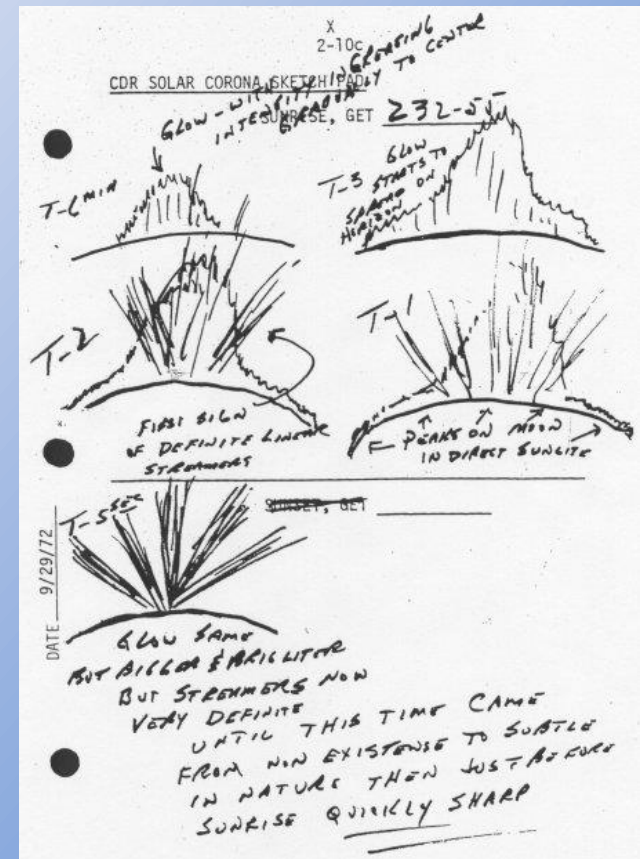 X
2-10c
CDR SOLAR CORONA SKETCH PAD
GLOW-WITH
INTENSITY INCREASING
GRADUALLY TO CENTER
SUNRISE, GET 232-55
T-6 MIN
T-3
GLOW
STARTS TO
SPREAD ON
HORIZON
T-2
T-1
FIRST SIGN
OF DEFINITE LINEAR
STREAMERS
PEAKS ON MOON
IN DIRECT SUNLITE
SUNSET, GET
T-5 SEC
DATE 9/29/72
GLOW SAME
BUT BIGGER & BRIGHTER
BUT STREAMERS NOW
VERY DEFINITE
UNTIL THIS TIME CAME
FROM NON EXISTENSE TO SUBTLE
IN NATURE THEN JUST BEFORE
SUNRISE QUICKLY SHARP